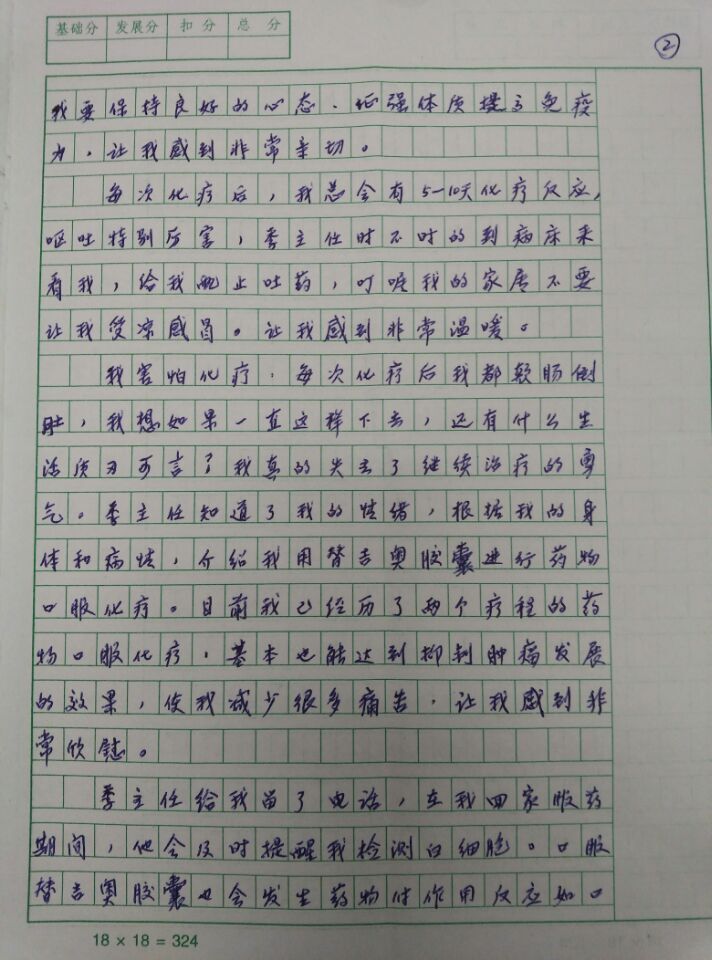 基础分 发展分 扣分 总分
②
我要保持良好的心态、征强体质提高免疫
力，让我感到非常亲切。
每次化疗后，我总会有5—10天化疗反应，
呕吐特别厉害，季主任时不时的到病床来
看我，给我配止吐药，叮嘱我的家属不要
让我受凉感冒。让我感到非常温暖。
我害怕化疗，每次化疗后我都软肠倒
肚，我想如果一直这样下去，还有什么生
活质可言？我真的失去了继续治疗的勇
气。季主任知道了我的情绪，根据我的身
体和病情，介绍我用替吉奥胶囊进行药物
口服化疗。目前我已经历了两个疗程的药
物口服化疗，基本也能达到抑制肿瘤发展
的效果，使我减少很多痛苦，让我感到非
常欣慰。
季主任给我留了电话，在我回家服药
期间，他会及时提醒我检测白细胞。口服
替吉奥胶囊也会发生药物付作用反应如口
18 × 18 = 324